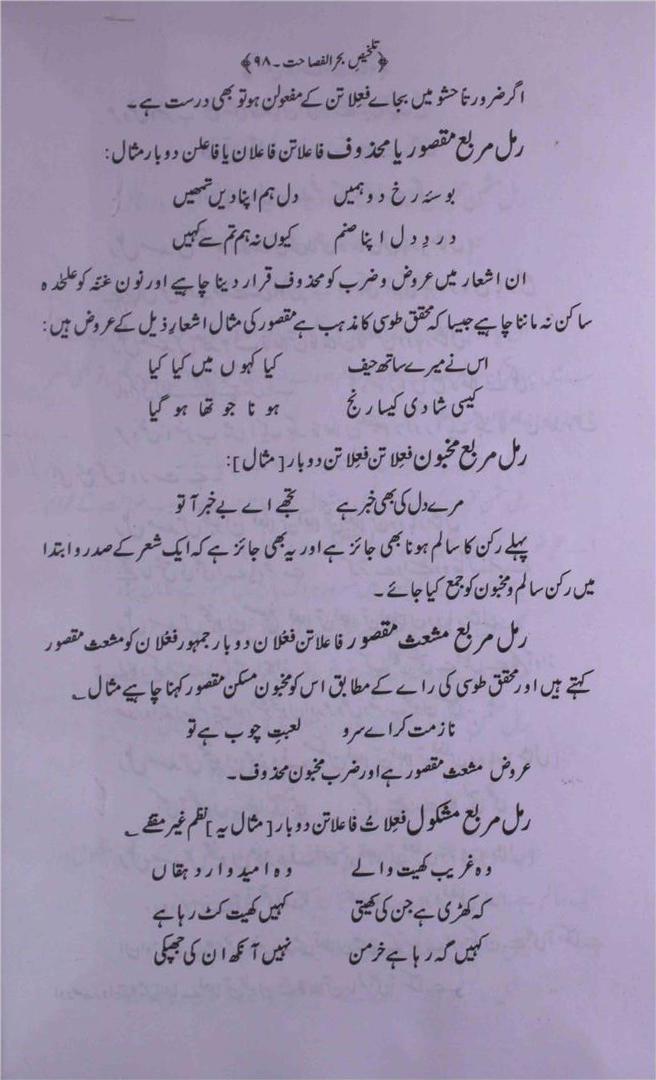 ﴿تلخیصِ بحر الفصاحت۔۹۸﴾
اگر ضرورتاً حشو میں بجاے فعِلاتن کے مفعولن ہو تو بھی درست ہے۔
رمل مربع مقصور یا محذوف فاعلاتن فاعلان یا فاعلن دوبار مثال:
بوسۂ رخ دو ہمیں دل ہم اپنا دیں تمھیں
دردِ دل اپنا صنم کیوں نہ ہم تم سے کہیں
ان اشعار میں عروض و ضرب کو محذوف قرار دینا چاہیے اور نون غنّہ کو علٰحدہ
ساکن نہ ماننا چاہیے جیسا کہ محقق طوسی کا مذہب ہے مقصور کی مثال اشعارِ ذیل کے عروض ہیں:
اس نے میرے ساتھ حیف کیا کہوں میں کیا کیا
کیسی شادی کیسا رنج ہونا جو تھا ہو گیا
رمل مربع مخبون فعِلاتن فعِلاتن دوبار [مثال]:
مرے دل کی بھی خبر ہے تجھے اے بے خبر آ تو
پہلے رکن کا سالم ہونا بھی جائز ہے اور یہ بھی جائز ہے کہ ایک شعر کے صدر و ابتدا
میں رکن سالم و مخبون کو جمع کیا جائے۔
رمل مربع مشعث مقصور فاعلاتن فعْلان دوبار جمہور فعْلان کو مشعث مقصور
کہتے ہیں اور محقق طوسی کی راے کے مطابق اس کو مخبون مسکن مقصور کہنا چاہیے مثال ؎
ناز مت کر اے سرو لعبتِ چوب ہے تو
عروض مشعث مقصور ہے اور ضرب مخبون محذوف۔
رمل مربع مشکول فعِلاتُ فاعلاتن دوبار [مثال یہ] نظم غیر مقفّے ؎
وہ غریب کھیت والے وہ امیدوار دہقاں
کہ کھڑی ہے جن کی کھیتی کہیں کھیت کٹ رہا ہے
کہیں گہ رہا ہے خرمن نہیں آنکھ ان کی جھپکی